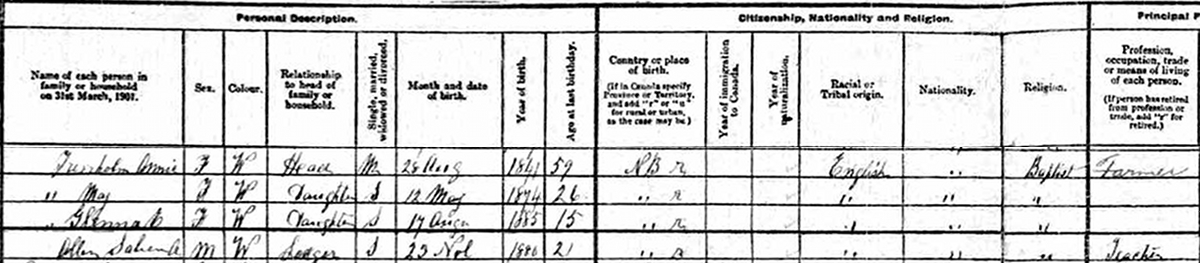 Personal Description. Citizenship, Nationality and Religion. Principal
Name of each person in family or household on 31st March, 1901. Sex. Colour. Relationship to head of family or household. Single, married, widowed or divorced. Month and date of birth. Year of birth. Age at last birthday. Country or place of birth. (If in Canada specify Province or Territory, and add "r" or "u" for rural or urban, as the case may be) Year of immigration to Canada. Year of naturalization. Racial or Tribal origin. Nationality. Religion. Profession, occupation, trade or means of living of each person. (If person has retired from profession or trade, add "r" for retired.)
Trenholm Annie F W Head M 28 Aug 1841 59 NB r English " Baptist Farmer
" May F W Daughter S 12 May 1874 26 " r " " "
" F W Daughter S 17 1885 15 " r " " "
Allen M W Lodger S 23 1880 21 " r " " " Teacher